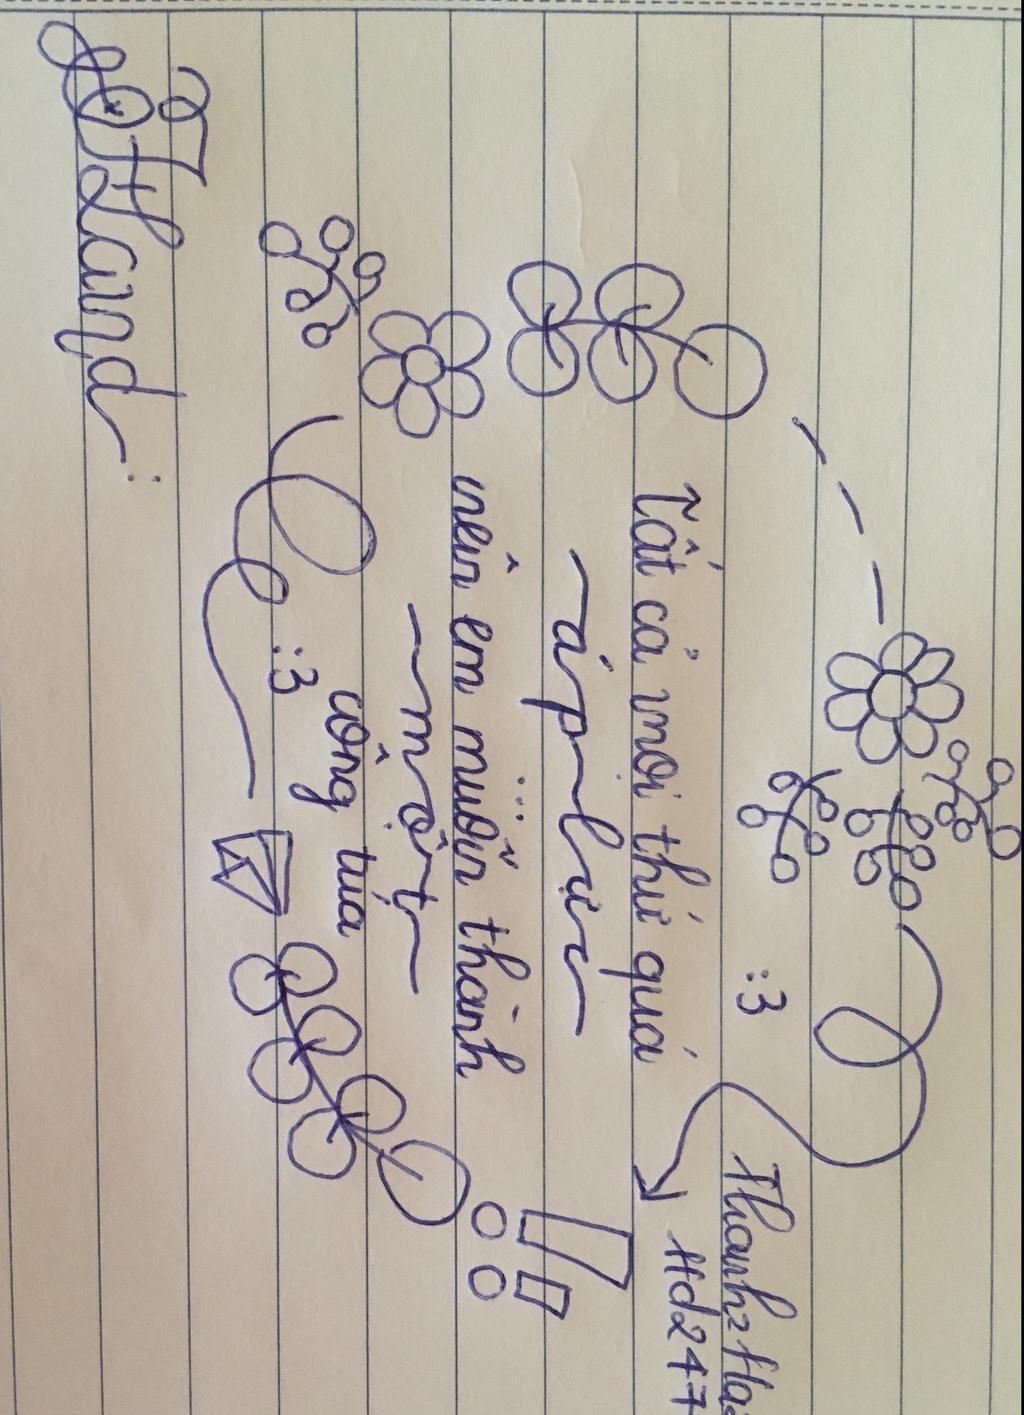 Thanh2Ha2
Hd247
:3
Tất cả mọi thứ quá
áp lực
nên em muốn thành
một
công túa
:3
Hand :